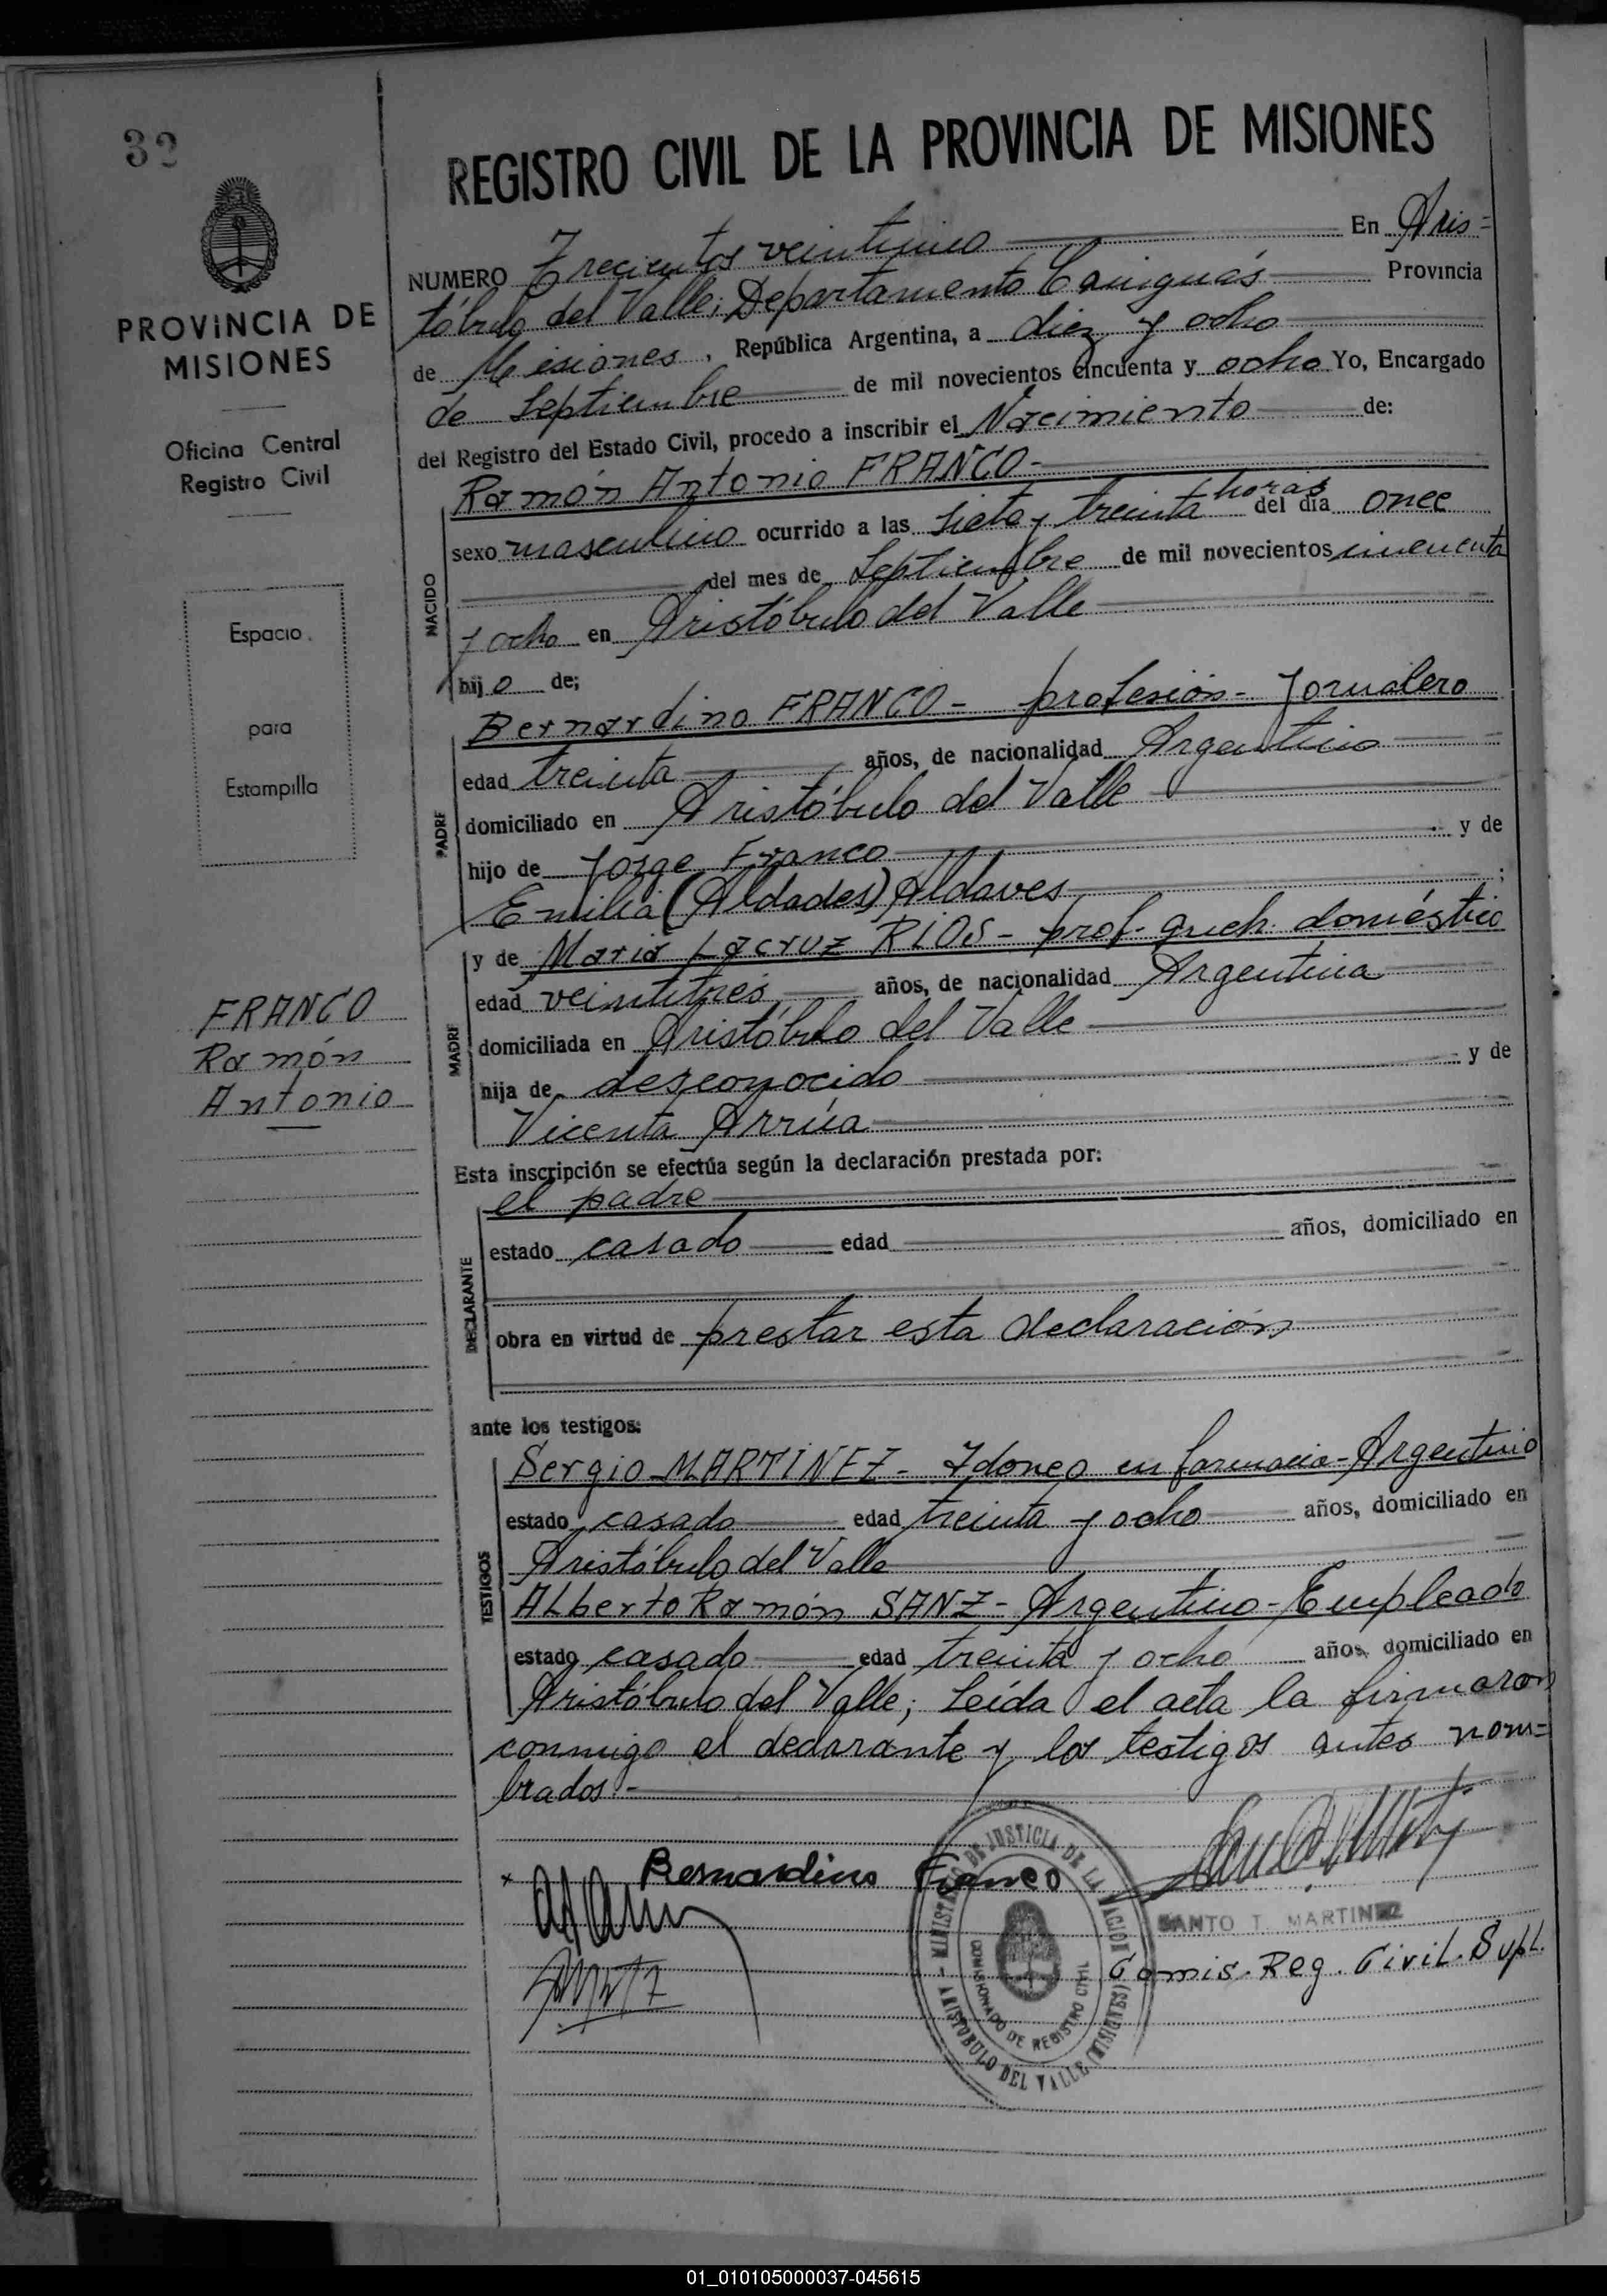 32
PROVINCIA DE
MISIONES
Oficina Central
Registro Civil
Espacio
para
Estampilla
FRANCO
Ramón
Antonio
REGISTRO CIVIL DE LA PROVINCIA DE MISIONES
NUMERO Trecientos veinticinco En Aris=
tóbulo del Valle; Departamento Cainguás Provincia
de Misiones, República Argentina, a diez y ocho
de Septiembre de mil novecientos cincuenta y ocho Yo, Encargado
del Registro del Estado Civil, procedo a inscribir el Nacimiento de:
Ramón Antonio FRANCO-
NACIDO
sexo masculino ocurrido a las siete y treinta horas del día once
del mes de Septiembre de mil novecientos cincuenta
y ocho en Aristóbulo del Valle
hijo de;
Bernardino FRANCO- profesión- Jornalero
PADRE
edad treinta años, de nacionalidad Argentino
domiciliado en Aristóbulo del Valle
hijo de Jorge Franco y de
Emilia (Aldades) Aldaves ;
MADRE
y de Maria Lacruz RIOS- prof. queh. doméstico
edad veintitrés años, de nacionalidad Argentina
domiciliada en Aristóbulo del Valle
hija de desconocido y de
Vicenta Arrúa
Esta inscripción se efectúa según la declaración prestada por:
el padre
DECLARANTE
estado casado edad años, domiciliado en
obra en virtud de prestar esta declaración
ante los testigos:
TESTIGOS
Sergio MARTINEZ- Idoneo en farmacia-Argentino
estado casado edad treinta y ocho años, domiciliado en
Aristóbulo del Valle
Alberto Ramón SANZ- Argentino-Empleado
estado casado edad treinta y ocho años, domiciliado en
Aristóbulo del Valle; Leída el acta la firmaron
conmigo el declarante y los testigos antes nom=
brados.-
Bernardino Franco
SANTO T. MARTINEZ
Comis. Reg. Civil. Supl.
MINISTERIO DE JUSTICIA DE LA NACION
COMISIONADO DE REGISTRO CIVIL
ARISTOBULO DEL VALLE (MISIONES)
01_010105000037-045615